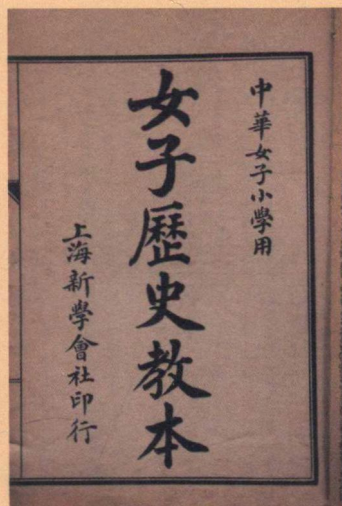 中華女子小學用
女子歷史教本
上海新學會社印行